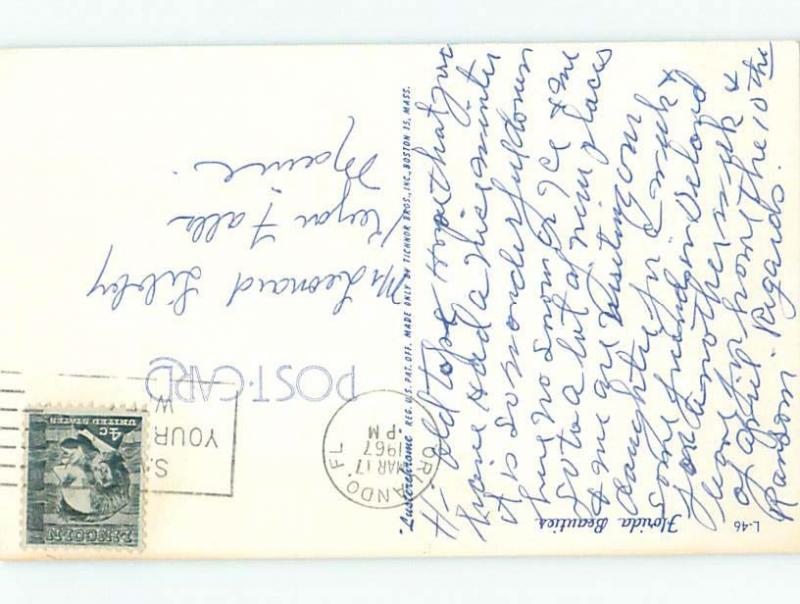 POST CARD
LINCOLN
4¢
UNITED STATES
ORLANDO, FL
MAR 17
PM
1967
YOUR
Mr Leonard Libby
Kezar Falls
Maine.
"Lusterchrome" REG. U.S. PAT. OFF. MADE ONLY BY TICHNOR BROS., INC., BOSTON 15, MASS.
Florida Beauties
L-46
Hi, old top hope that you
have had a nice winter
it is so wonderful down
no snow or Ice & we
go to a lot of new places
& we are visiting our
daughter for week &
some friends in Deland
for another week &
of april home the 10 the
Ransom. Regards.